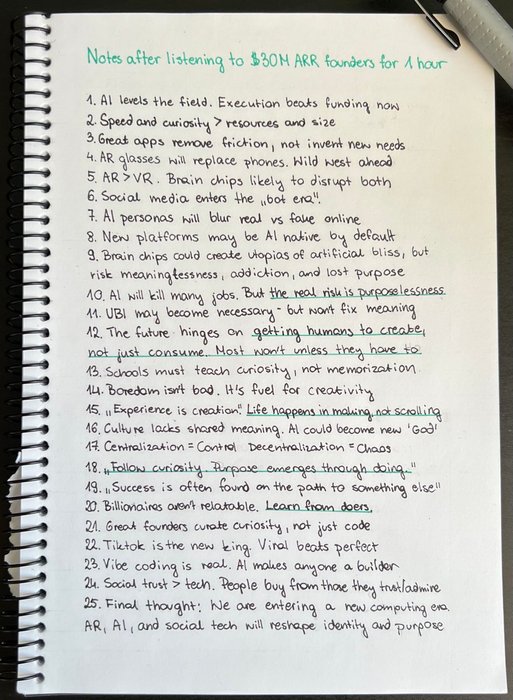 Notes after listening to $30M ARR founders for 1 hour
1. AI levels the field. Execution beats funding now
2. Speed and curiosity > resources and size
3. Great apps remove friction, not invent new needs
4. AR glasses will replace phones. Wild West ahead
5. AR > VR. Brain chips likely to disrupt both
6. Social media enters the „bot era".
7. AI personas will blur real vs fake online
8. New platforms may be AI native by default
9. Brain chips could create utopias of artificial bliss, but
risk meaninglessness, addiction, and lost purpose
10. AI will kill many jobs. But the real risk is purposelessness.
11. UBI may become necessary - but won't fix meaning
12. The future hinges on getting humans to create,
not just consume. Most won't unless they have to.
13. Schools must teach curiosity, not memorization.
14. Boredom isn't bad. It's fuel for creativity
15. „Experience is creation". Life happens in making, not scrolling
16. Culture lacks shared meaning. AI could become new 'God'
17. Centralization = Control Decentralization = Chaos
18. „Follow curiosity. Purpose emerges through doing."
19. „Success is often found on the path to something else"
20. Billionaires aren't relatable. Learn from doers.
21. Great founders curate curiosity, not just code
22. Tiktok is the new king. Viral beats perfect
23. Vibe coding is real. AI makes anyone a builder
24. Social trust > tech. People buy from those they trust/admire
25. Final thought: We are entering a new computing era.
AR, AI, and social tech will reshape identity and purpose